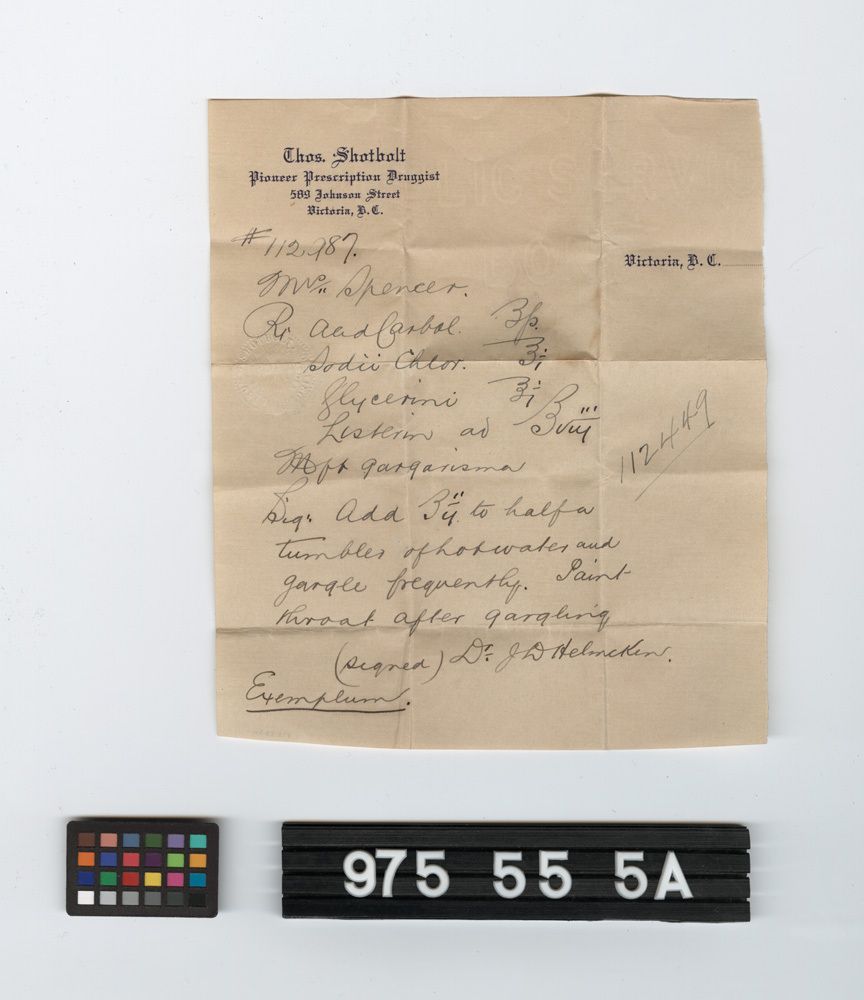 Thos. Shotbolt
Pioneer Prescription Druggist
589 Johnson Street
Victoria, B.C.
Victoria, B.C.
#112987.
Mrs. Spencer.
Rx Acid Carbol. ʒſs.
Sodii Chlor. ʒi
Glycerini ʒi
Listerin ad ʒviij
Mft gargarisma
112449
Sig: Add ʒij to half a
tumbler of hot water and
gargle frequently. Paint
throat after gargling
(signed) Dr. J D Helmcken.
Exemplum.
975 55 5A